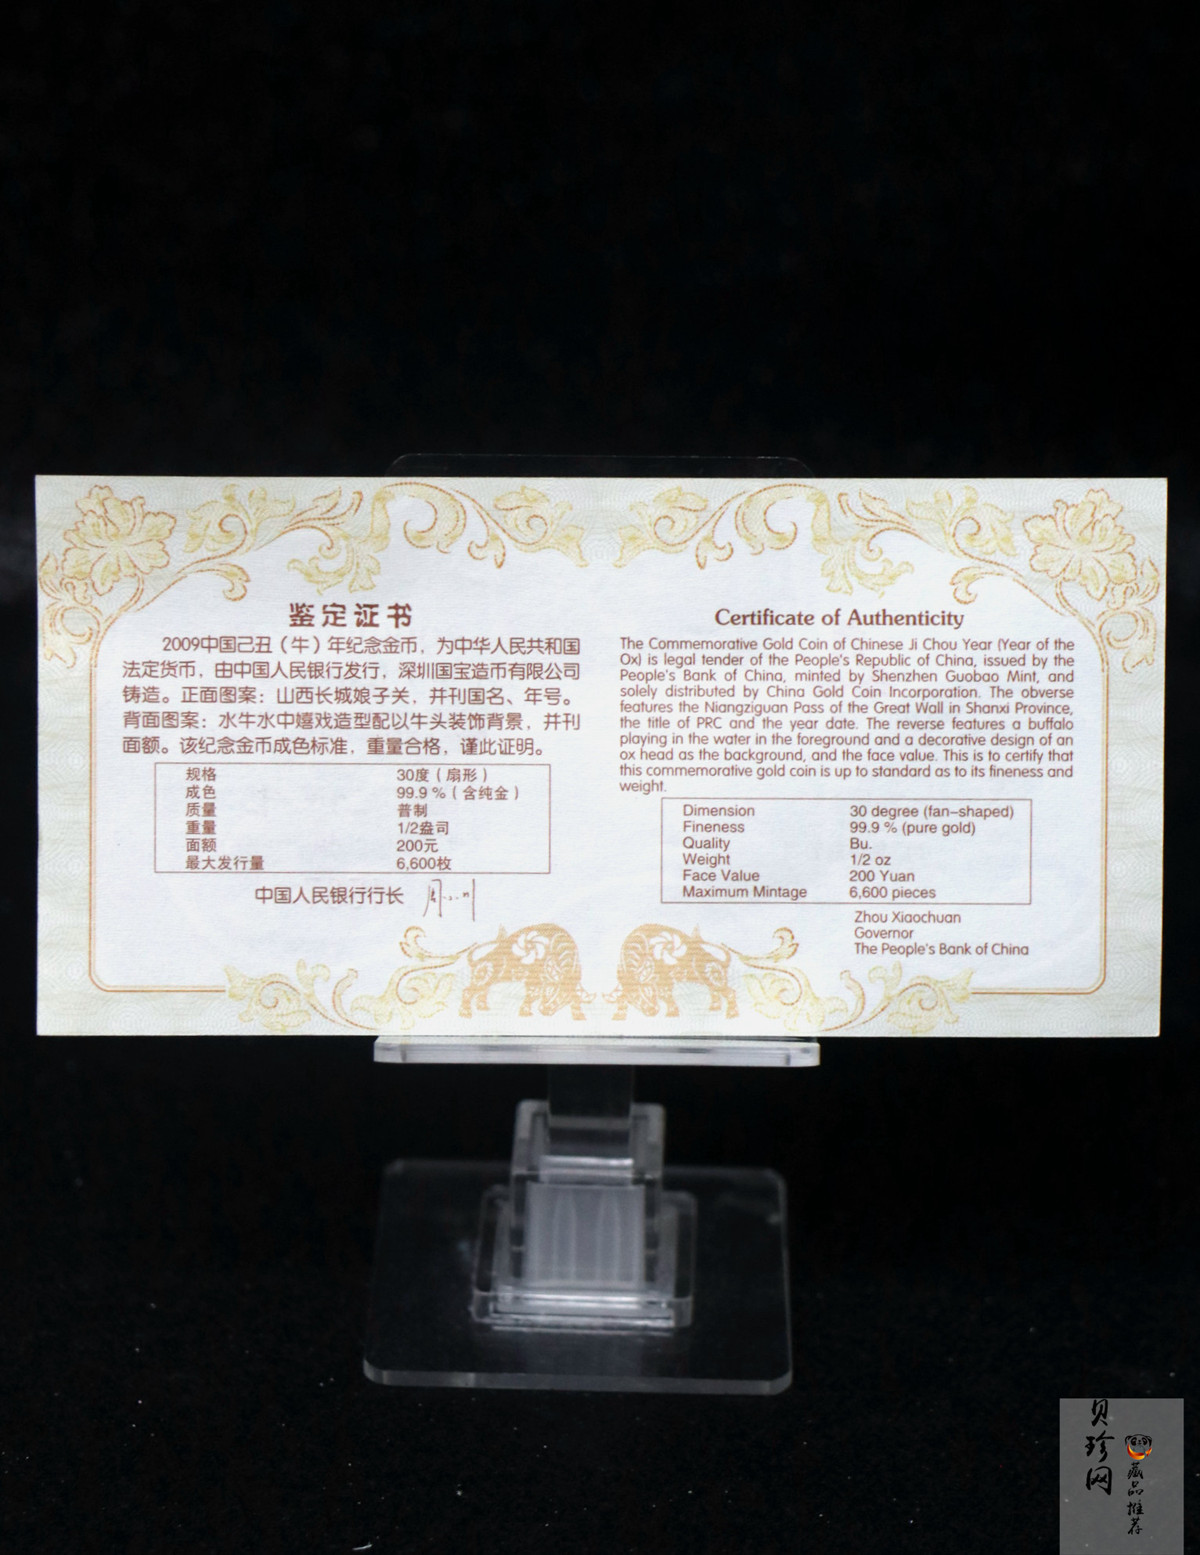 鉴定证书
2009中国己丑（牛）年纪念金币，为中华人民共和国
法定货币，由中国人民银行发行，深圳国宝造币有限公司
铸造。正面图案：山西长城娘子关，并刊国名、年号。
背面图案：水牛水中嬉戏造型配以牛头装饰背景，并刊
面额。该纪念金币成色标准，重量合格，谨此证明。
规格 30度（扇形）
成色 99.9 %（含纯金）
质量 普制
重量 1/2盎司
面额 200元
最大发行量 6,600枚
中国人民银行行长
Certificate of Authenticity
The Commemorative Gold Coin of Chinese Ji Chou Year (Year of the
Ox) is legal tender of the People's Republic of China, issued by the
People's Bank of China, minted by Shenzhen Guobao Mint, and
solely distributed by China Gold Coin Incorporation. The obverse
features the Niangziguan Pass of the Great Wall in Shanxi Province,
the title of PRC and the year date. The reverse features a buffalo
playing in the water in the foreground and a decorative design of an
ox head as the background, and the face value. This is to certify that
this commemorative gold coin is up to standard as to its fineness and
weight.
Dimension 30 degree (fan-shaped)
Fineness 99.9 % (pure gold)
Quality Bu.
Weight 1/2 oz
Face Value 200 Yuan
Maximum Mintage 6,600 pieces
Zhou Xiaochuan
Governor
The People's Bank of China
贝珍网
藏品推荐